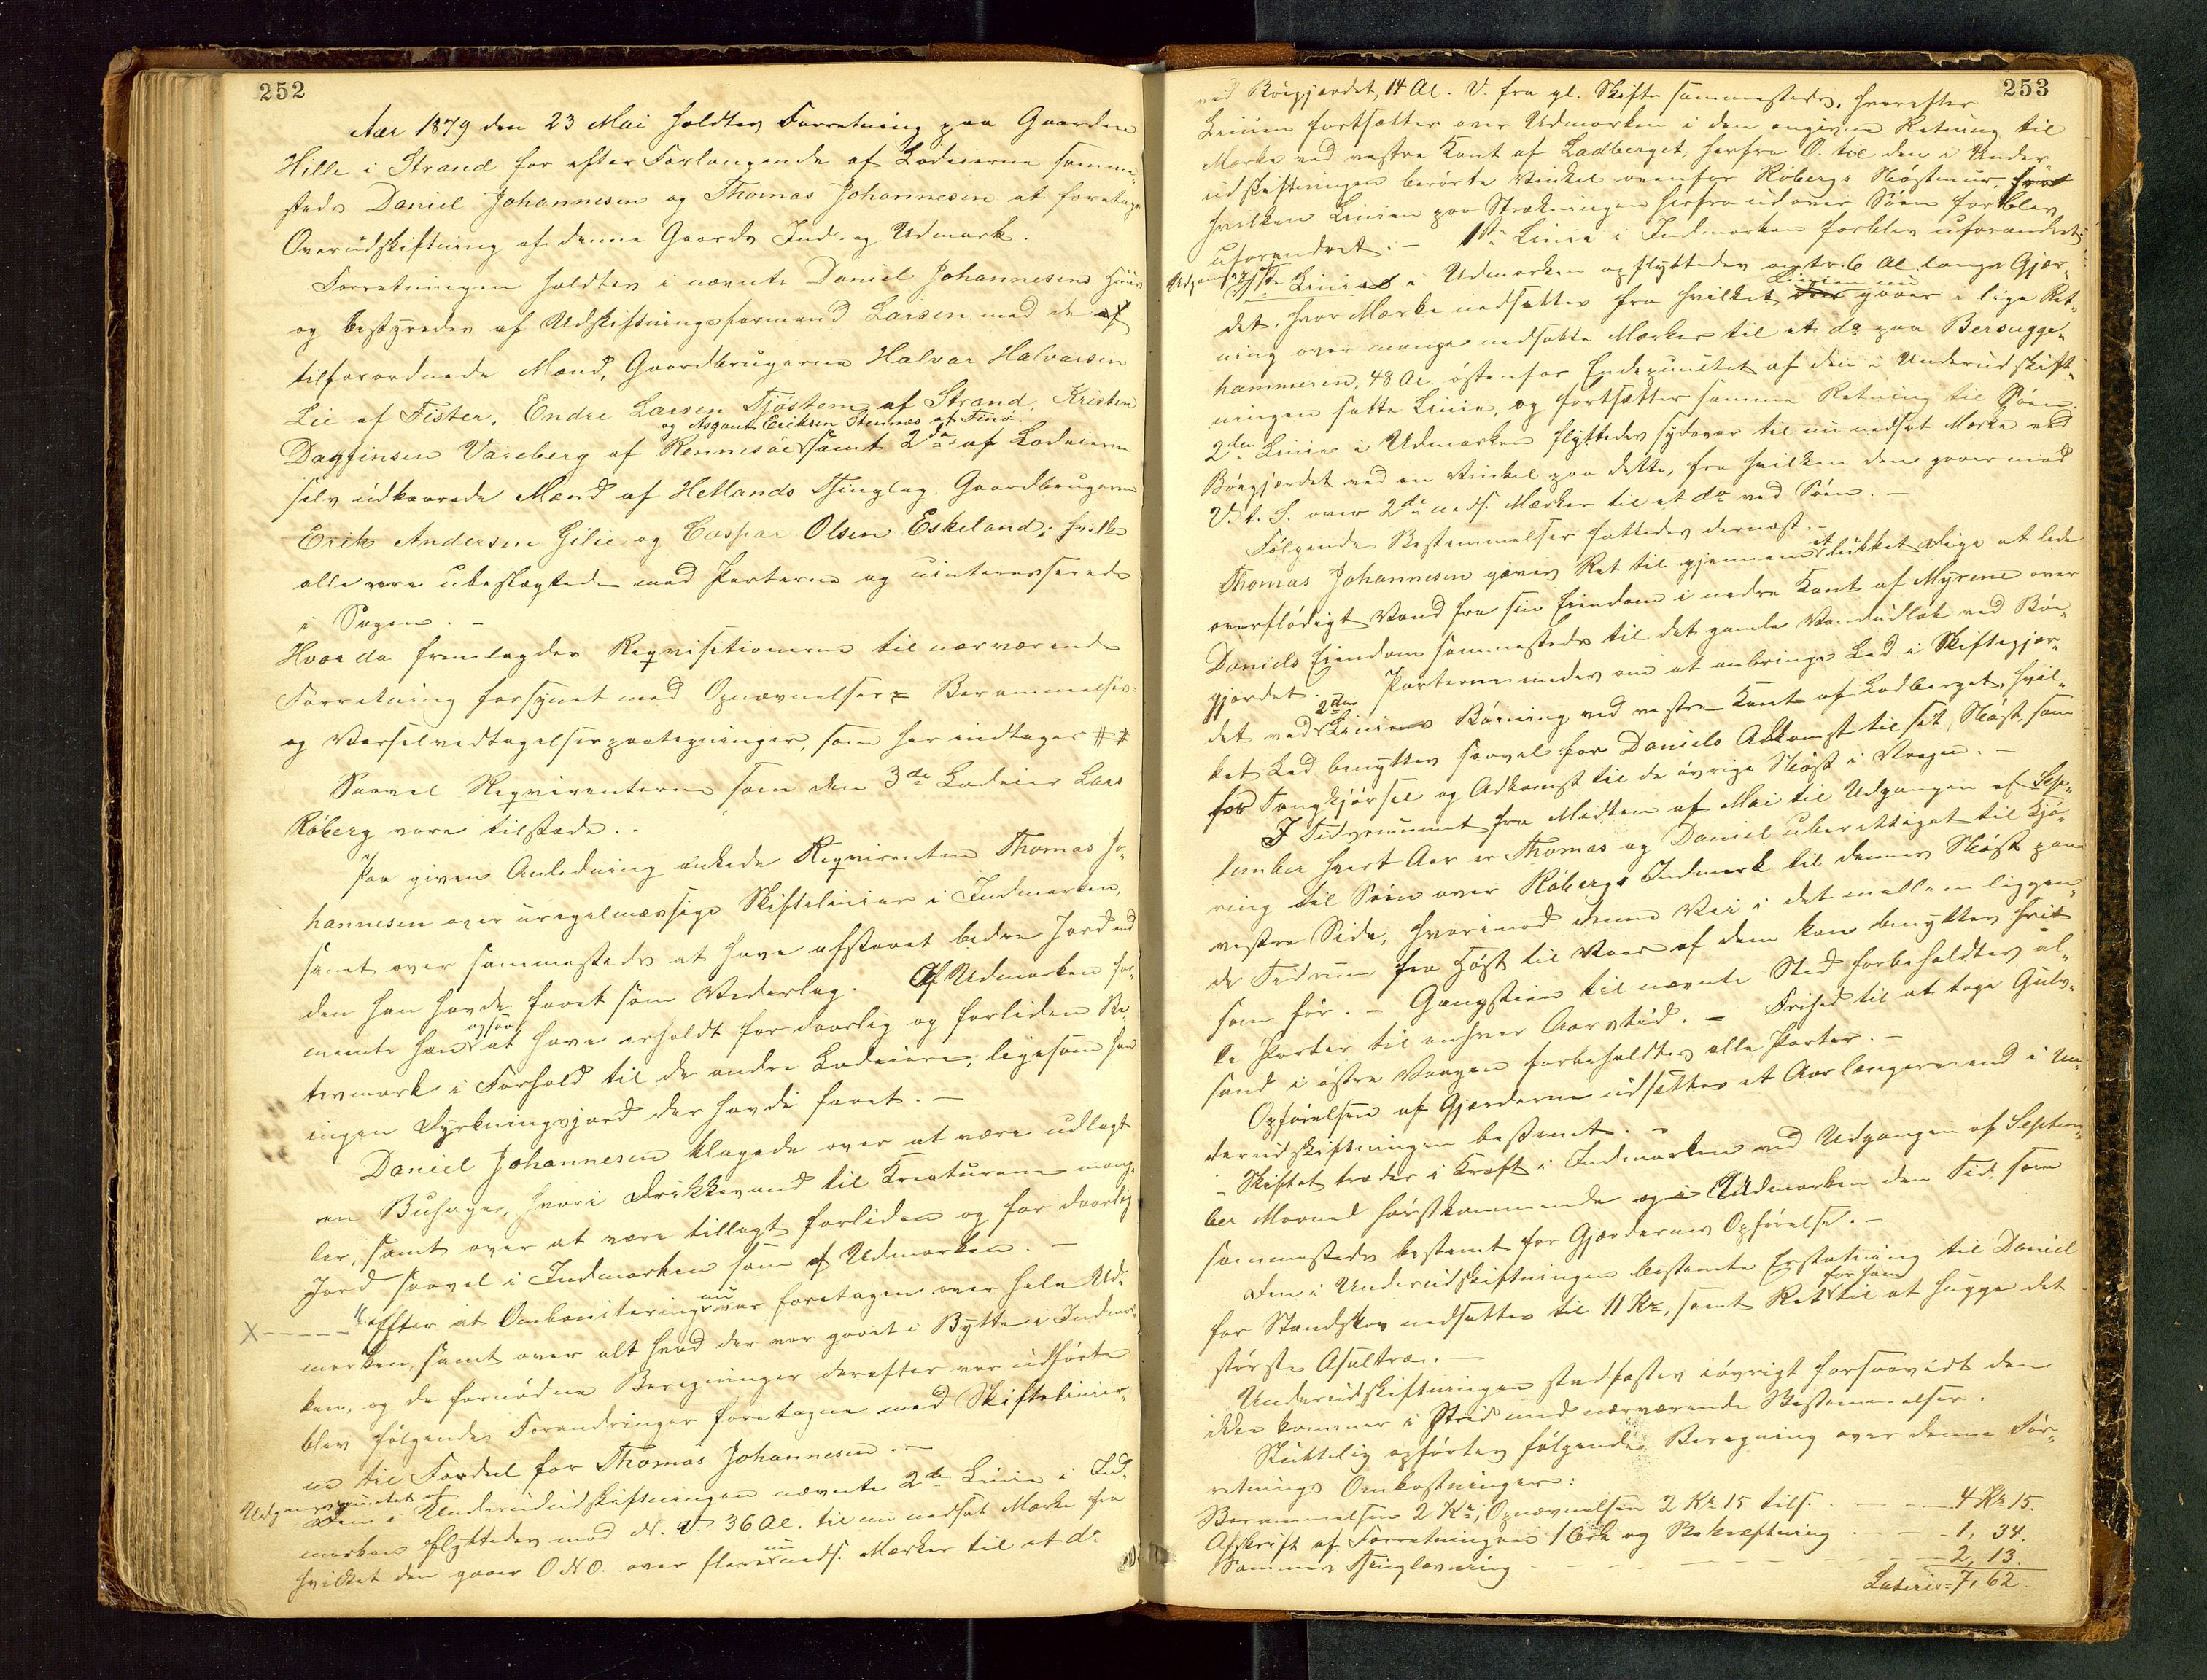 252
Aar 1879 den 23 Mai holdtes Forretning paa Gaarden
Hille i Strand for efter Forlangende af Lodeierne samme„
steds Daniel Johannesen og Thomas Johannesen at foretage
Overudskiftning af denne Gaards Ind- og Udmark.
Forretningen holdtes i nævnte Daniel Johannesens Huus
og bestyredes af Udskiftningsformand Larsen med de af
tilforordnede Mænd, Gaardbrugerne Halvar Halvarsen
Lie af Fister, Endre Larsen Tjøstem af Strand, Kristen
og Asgaut Eriksen Stennes af Finø.
Dagfinsen Vareberg af Rennesøe samt 2de af Lodeierne
selv udkaarede Mænd af Hetlands Thinglag. Gaardbrugerne
Erik Andersen Gilie og Caspar Olsen Eskeland; hvilke
alle vare ubeslægtede med Parterne og uinteresserede
i Sagen. -
Hvor da fremlagdes Reqvisitionerne til nærværende
Forretning forsynet med Opnævnelses- Berammelses-
og Varselvedtagelsespaategninger, som her indtages # #
Saavel Reqvirenterne som den 3de Lodeier Lars
Røberg vare tilstede. -
Paa given Anledning ankede Reqvirenten Thomas Jo„
hannesen over uregelmæssige Skiftelinier i Indmarken,
samt over sammesteds at have afstaaet bedre Jord end
den han havde faaet som Vederlag. Af Udmarken for„
ogsaa
mente han at have erholdt for daarlig og forliden Be„
tesmark i Forhold til de andre Lodeiere, ligesom han
ingen Dyrkningsjord der havde faaet. -
Daniel Johannesen klagede over at være udlagt
en Buhage, hvori Drikkevand til Kreaturene mang„
ler, samt over at være tillagt forliden og for daarlig
Jord saavel i Indmarken som af Udmarken. -
nu
X - - - - - " Efter at Ombonitering var foretagen over hele Ud„
marken, samt over alt hvad der var gaaet i Bytte i Indmar„
ken, og de fornødne Beregninger derefter var udførte
blev følgende Forandringer foretagne med Skiftelinier„
ne til Fordeel for Thomas Johannesen. -
Udgangspunktet af
Den i Underudskiftningen nævnte 2den Linie i Ind„
marken flyttedes mod N. V. 36 Al. til nu nedsat Mærke fra
nu
hvilket den gaaer O N O. over flere neds. Mærker til et do
253
ved Bøegjærdet, 14 Al. V. fra gl. Skifte sammesteds, hvorefter
Linien fortsætter over Udmarken i den angivne Retning til
Mærke ved vestre Kant af Ladberget, herfra O. til den i Under„
udskiftningen berørte Vinkel ovenfor Røbergs Nøstmuur,
hvilken Linien paa Strækningen herfra udover Søen forblev
uforandret. - 1ste Linie i Indmarken forblev uforandret;
Udgangspkt af
1ste Linie i Udmarken flyttedes 6 Al. langs Gjær„
Linien nu
det, hvor Mærke nedsattes fra hvilket den gaaer i lige Ret„
ning over mange nedsatte Mærker til et do paa Bersugge„
hammeren, 48 Al. østenfor Endepunctet af den i Underudskift„
ningen satte Linie, og fortsætter samme Retning til Søen.
2den Linie i Udmarken flyttedes sydover til nu nedsat Mærke ved
Bøegjærdet ved en Vinkel paa dette, fra hvilken den gaaer mod
V. t. S. over 2de neds. Mærker til et do ved Søen. -
Følgende Bestemmelser fattedes dernæst. -
et
Thomas Johannesen gaves Ret til gjennem lukket Dige at lede
overflødigt Vand fra sin Eiendom i nedre Kant af Myrene over
Daniels Eiendom sammesteds til det gamle Vandudløb ved Bøe„
gjærdet. - Parterne enedes om at anbringe Led i Skiftegjær„
2den
det ved Liniens Bøining ved vestre Kant af Ladberget, hvil„
ket Led benyttes saavel for Daniels Adkomst til sit Nøst, som
for Tangkjørsel og Adkomst til de øvrige Nøst i Vaagen. -
I Tidsrummet fra Midten af Mai til Udgangen af Sep„
tember hvert Aar er Thomas og Daniel uberettiget til Kjø„
ring til Søen over Røbergs Indmark til dennes Nøst paa
vestre Side, hvorimod denne Vei i det mellem liggen„
de Tidsrum fra Høst til Vaar af dem kan benyttes frit
som før. - Gangstien til nævnte Sted forbeholdtes al„
le Parter til enhver Aarstid. - Frihed til at tage Gulv„
sand i østre Vaagen forbeholdtes alle Parter. -
Opførelsen af Gjærderne udsættes et Aar længere end i Un„
derudskiftningen bestemt. -
- Skiftet træder i Kraft i Indmarken ved Udgangen af Septem„
ber Maaned førstkommende og i Udmarken den Tid, som
sammesteds bestemt for Gjærdernes Opførelse. -
Den i Underudskiftningen bestemte Erstatning til Daniel
for ham
for Standskov nedsattes til 11 Kr, samt Ret til at hugge det
største Asaltræ. -
Underudskiftningen stadfæstes iøvrigt forsaavidt den
ikke kommer i Strid med nærværende Bestemmelser.
Sluttelig opførtes følgende Beregning over denne For„
retnings Omkostninger:
Berammelsen 2 Kr, Opnævnelsen 2 Kr 15 tils. - - - - 4 Kr 15.
Afskrift af Forretningen 1 Ark og Bekræftning - - - - 1, 34.
Sammes Thinglæsning - - - - - - 2, 13.
Lateris = 7, 62.